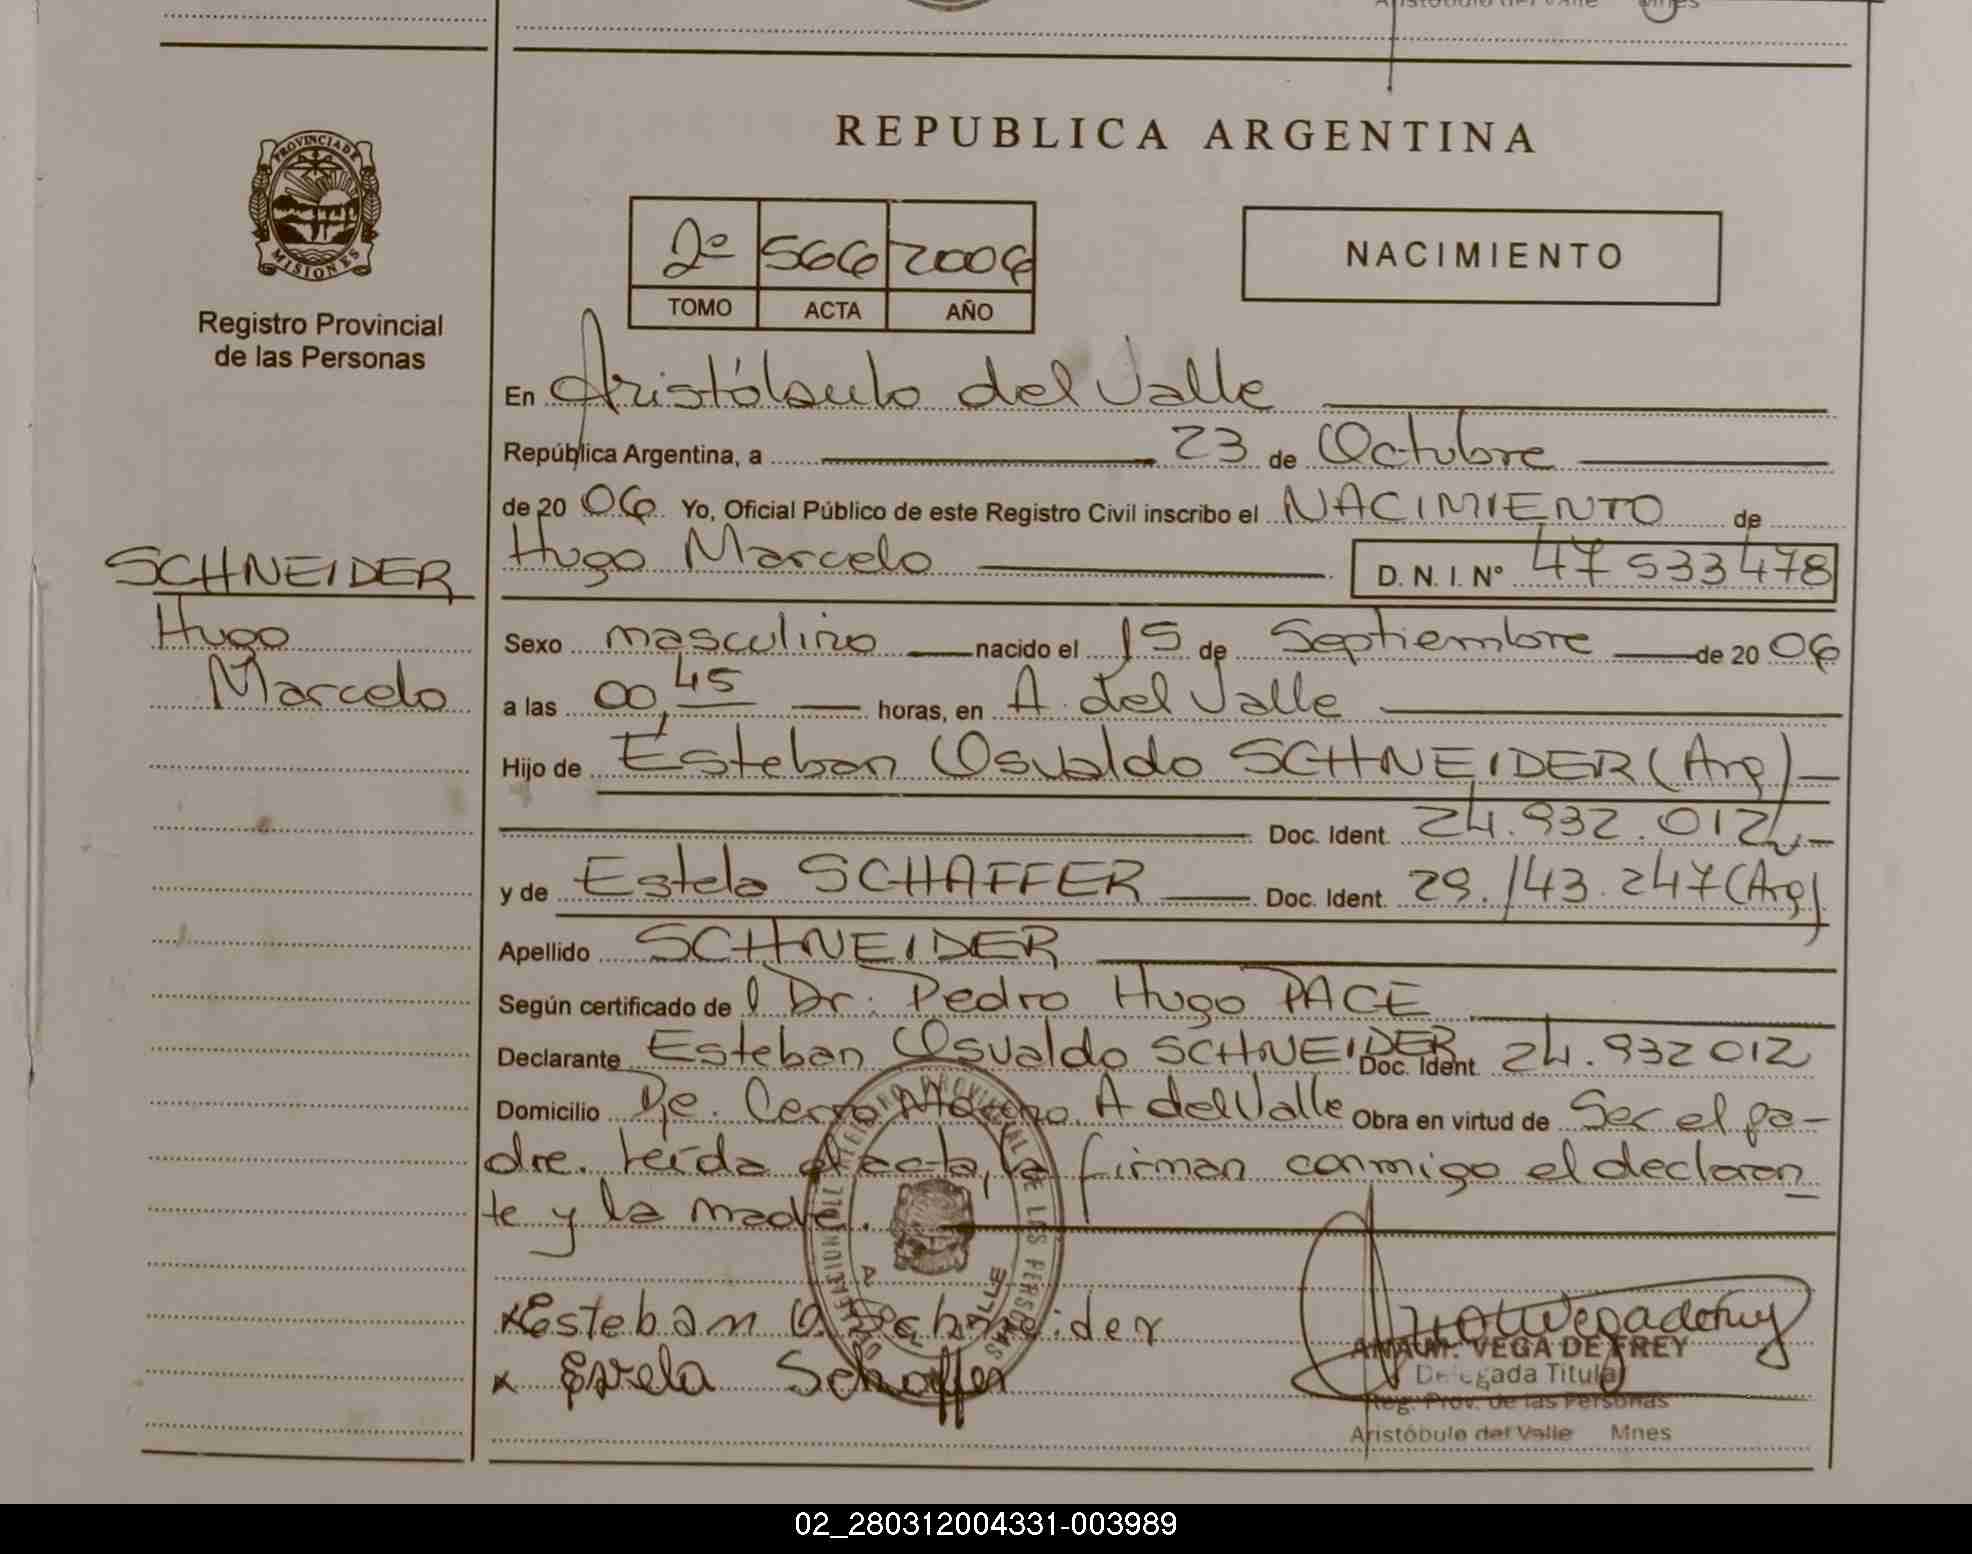 Aristóbulo del Valle Mnes
PROVINCIA DE
MISIONES
Registro Provincial
de las Personas
SCHNEIDER
Hugo
Marcelo
REPUBLICA ARGENTINA
2º 566 2006
TOMO ACTA AÑO
NACIMIENTO
En Aristóbulo del Valle
República Argentina, a 23 de Octubre
de 20 06 Yo, Oficial Público de este Registro Civil inscribo el NACIMIENTO de
Hugo Marcelo D. N. I. Nº 47 533 478
Sexo masculino nacido el 15 de Septiembre de 20 06
a las 00,45 horas, en A. del Valle
Hijo de Esteban Osvaldo SCHNEIDER (Arg)
Doc. Ident. 24.932.012
y de Estela SCHAFFER Doc. Ident. 29.143.247 (Arg)
Apellido SCHNEIDER
Según certificado de l Dr. Pedro Hugo PACE
Declarante Esteban Osvaldo SCHNEIDER Doc. Ident. 24.932 012
Domicilio Pje. Cerro Moreno A del Valle Obra en virtud de Ser el pa-
dre. Leída el acta, la firman conmigo el declaran
te y la madre.
REGISTRO PROVINCIAL DE LAS PERSONAS
A. VALLE
x Esteban O. Schneider
x Estela Schaffer
ANA M. VEGA DE FREY
Delegada Titular
Reg. Prov. de las Personas
Aristóbulo del Valle Mnes
02_280312004331-003989